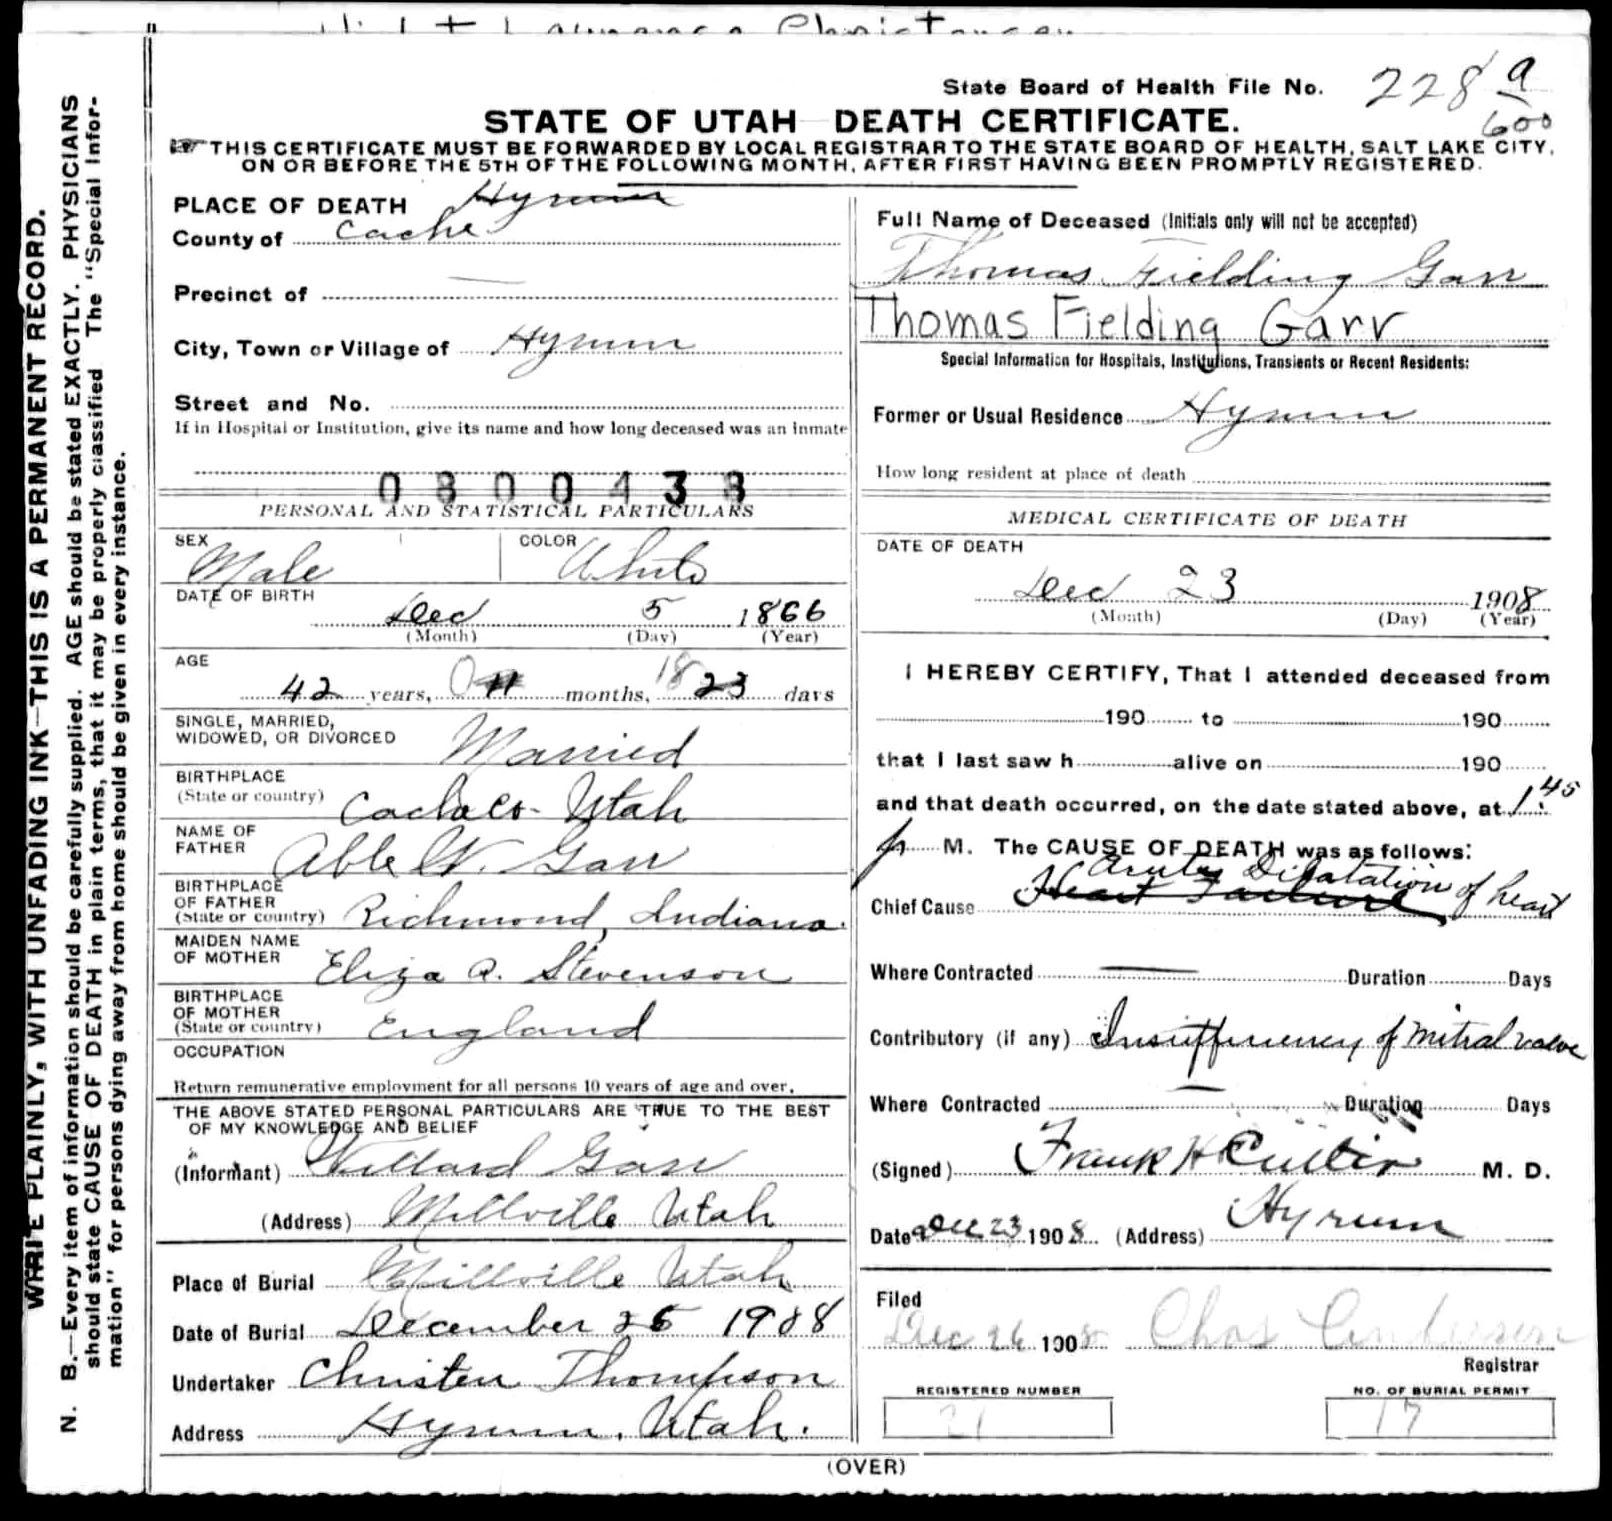 State Board of Health File No. 228 a
600
STATE OF UTAH DEATH CERTIFICATE.
☞ THIS CERTIFICATE MUST BE FORWARDED BY LOCAL REGISTRAR TO THE STATE BOARD OF HEALTH, SALT LAKE CITY,
ON OR BEFORE THE 5TH OF THE FOLLOWING MONTH, AFTER FIRST HAVING BEEN PROMPTLY REGISTERED.
WRITE PLAINLY, WITH UNFADING INK—THIS IS A PERMANENT RECORD.
N. B.—Every item of information should be carefully supplied. AGE should be stated EXACTLY. PHYSICIANS
should state CAUSE OF DEATH in plain terms, that it may be properly classified The "Special Infor-
mation" for persons dying away from home should be given in every instance.
PLACE OF DEATH Hyrum
County of Cache
Precinct of —
City, Town or Village of Hyrum
Street and No.
If in Hospital or Institution, give its name and how long deceased was an inmate
0800438
PERSONAL AND STATISTICAL PARTICULARS
SEX Male COLOR White
DATE OF BIRTH
Dec 5 1866
(Month) (Day) (Year)
AGE
42 years, 0 11 months, 18 23 days
SINGLE, MARRIED,
WIDOWED, OR DIVORCED Married
BIRTHPLACE
(State or country) Cache Co- Utah
NAME OF
FATHER Able W. Garr
BIRTHPLACE
OF FATHER
(State or country) Richmond, Indiana.
MAIDEN NAME
OF MOTHER Eliza A. Stevenson
BIRTHPLACE
OF MOTHER
(State or country) England
OCCUPATION
Return remunerative employment for all persons 10 years of age and over.
THE ABOVE STATED PERSONAL PARTICULARS ARE TRUE TO THE BEST
OF MY KNOWLEDGE AND BELIEF
(Informant) Willard Garr
(Address) Millville Utah
Place of Burial Millville Utah
Date of Burial December 25 1908
Undertaker Christen Thompson
Address Hyrum, Utah.
Full Name of Deceased (Initials only will not be accepted)
Thomas Fielding Garr
Thomas Fielding Garr
Special Information for Hospitals, Institutions, Transients or Recent Residents:
Former or Usual Residence Hyrum
How long resident at place of death
MEDICAL CERTIFICATE OF DEATH
DATE OF DEATH
Dec 23 1908
(Month) (Day) (Year)
I HEREBY CERTIFY, That I attended deceased from
190 to 190
that I last saw h alive on 190
and that death occurred, on the date stated above, at 1:45
p M. The CAUSE OF DEATH was as follows:
Acute Dilatation of heart
Chief Cause Heart Failure
Where Contracted — Duration Days
Contributory (if any) Insufficiency of mitral valve
Where Contracted — Duration Days
(Signed) Frank H Cutler M. D.
Date Dec 23 1908 (Address) Hyrum
Filed
Dec 26 1908 Chas Anderson
Registrar
REGISTERED NUMBER NO. OF BURIAL PERMIT
21 17
(OVER)